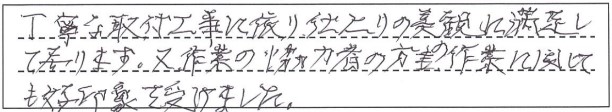 丁寧な取付工事に依り仕上りの美観に満足し
て居ります。又作業の協力者の方達の作業に関して
も好印象を受けました。